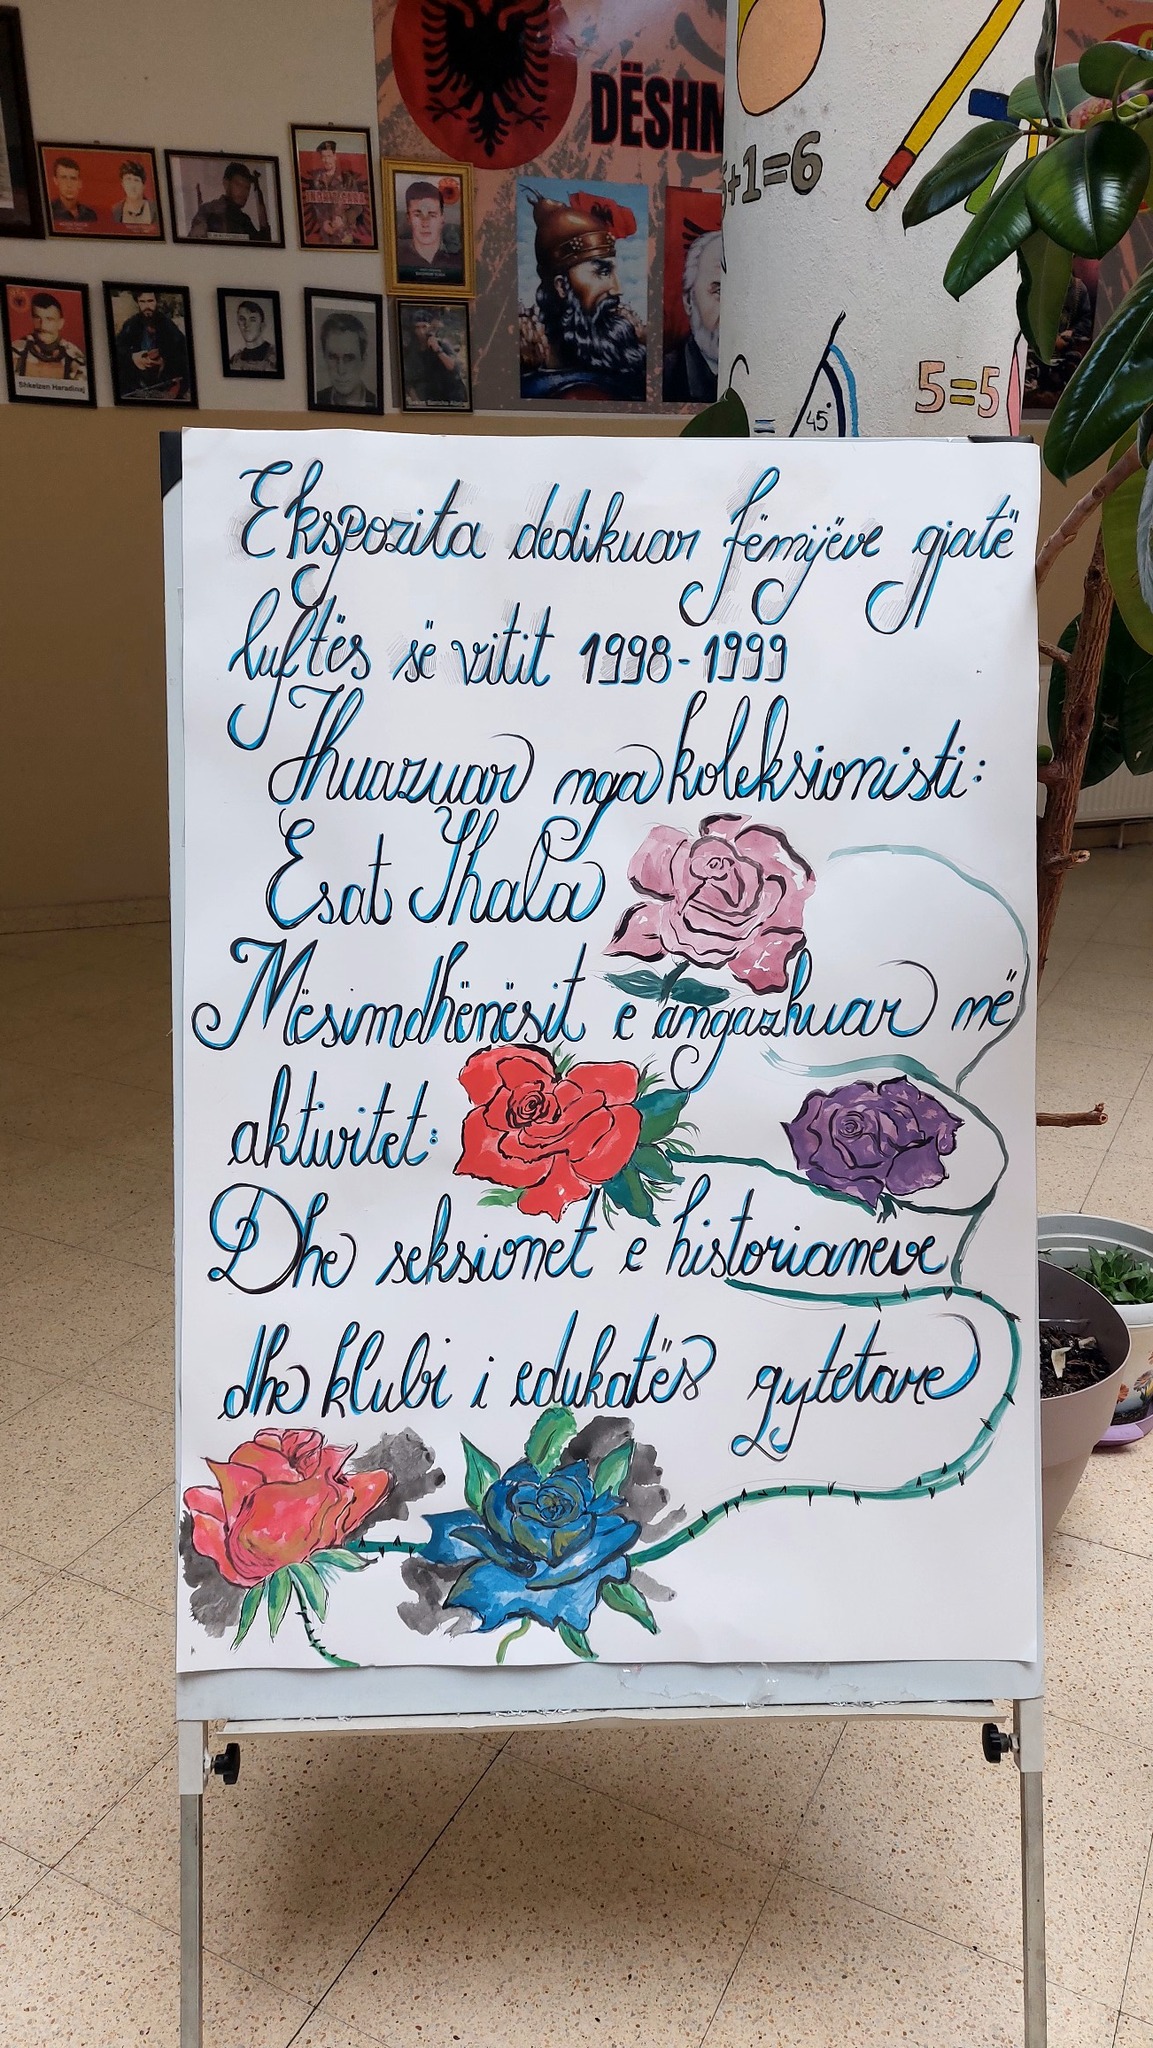 DËSHM
+1=6
5=5
45°
Shkelzen Haradinaj
Ekspozita dedikuar fëmijëve gjatë
luftës së vitit 1998-1999
Huazuar nga koleksionisti:
Esat Shala
Mësimdhënësit e angazhuar në
aktivitet:
Dhe seksionet e historianeve
dhe klubi i edukatës qytetare